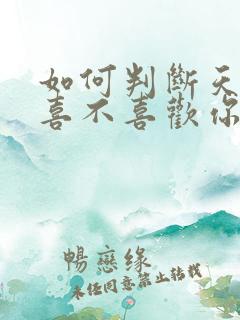 如何判斷天
喜不喜歡你
暢戀缘
未经同意禁止转载